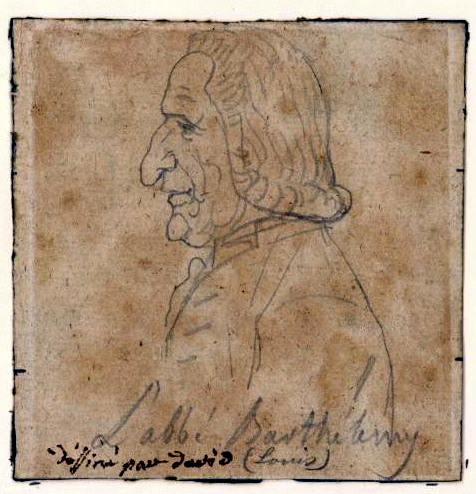 L'abbé Barthélemy
déssiné par david (Louis)